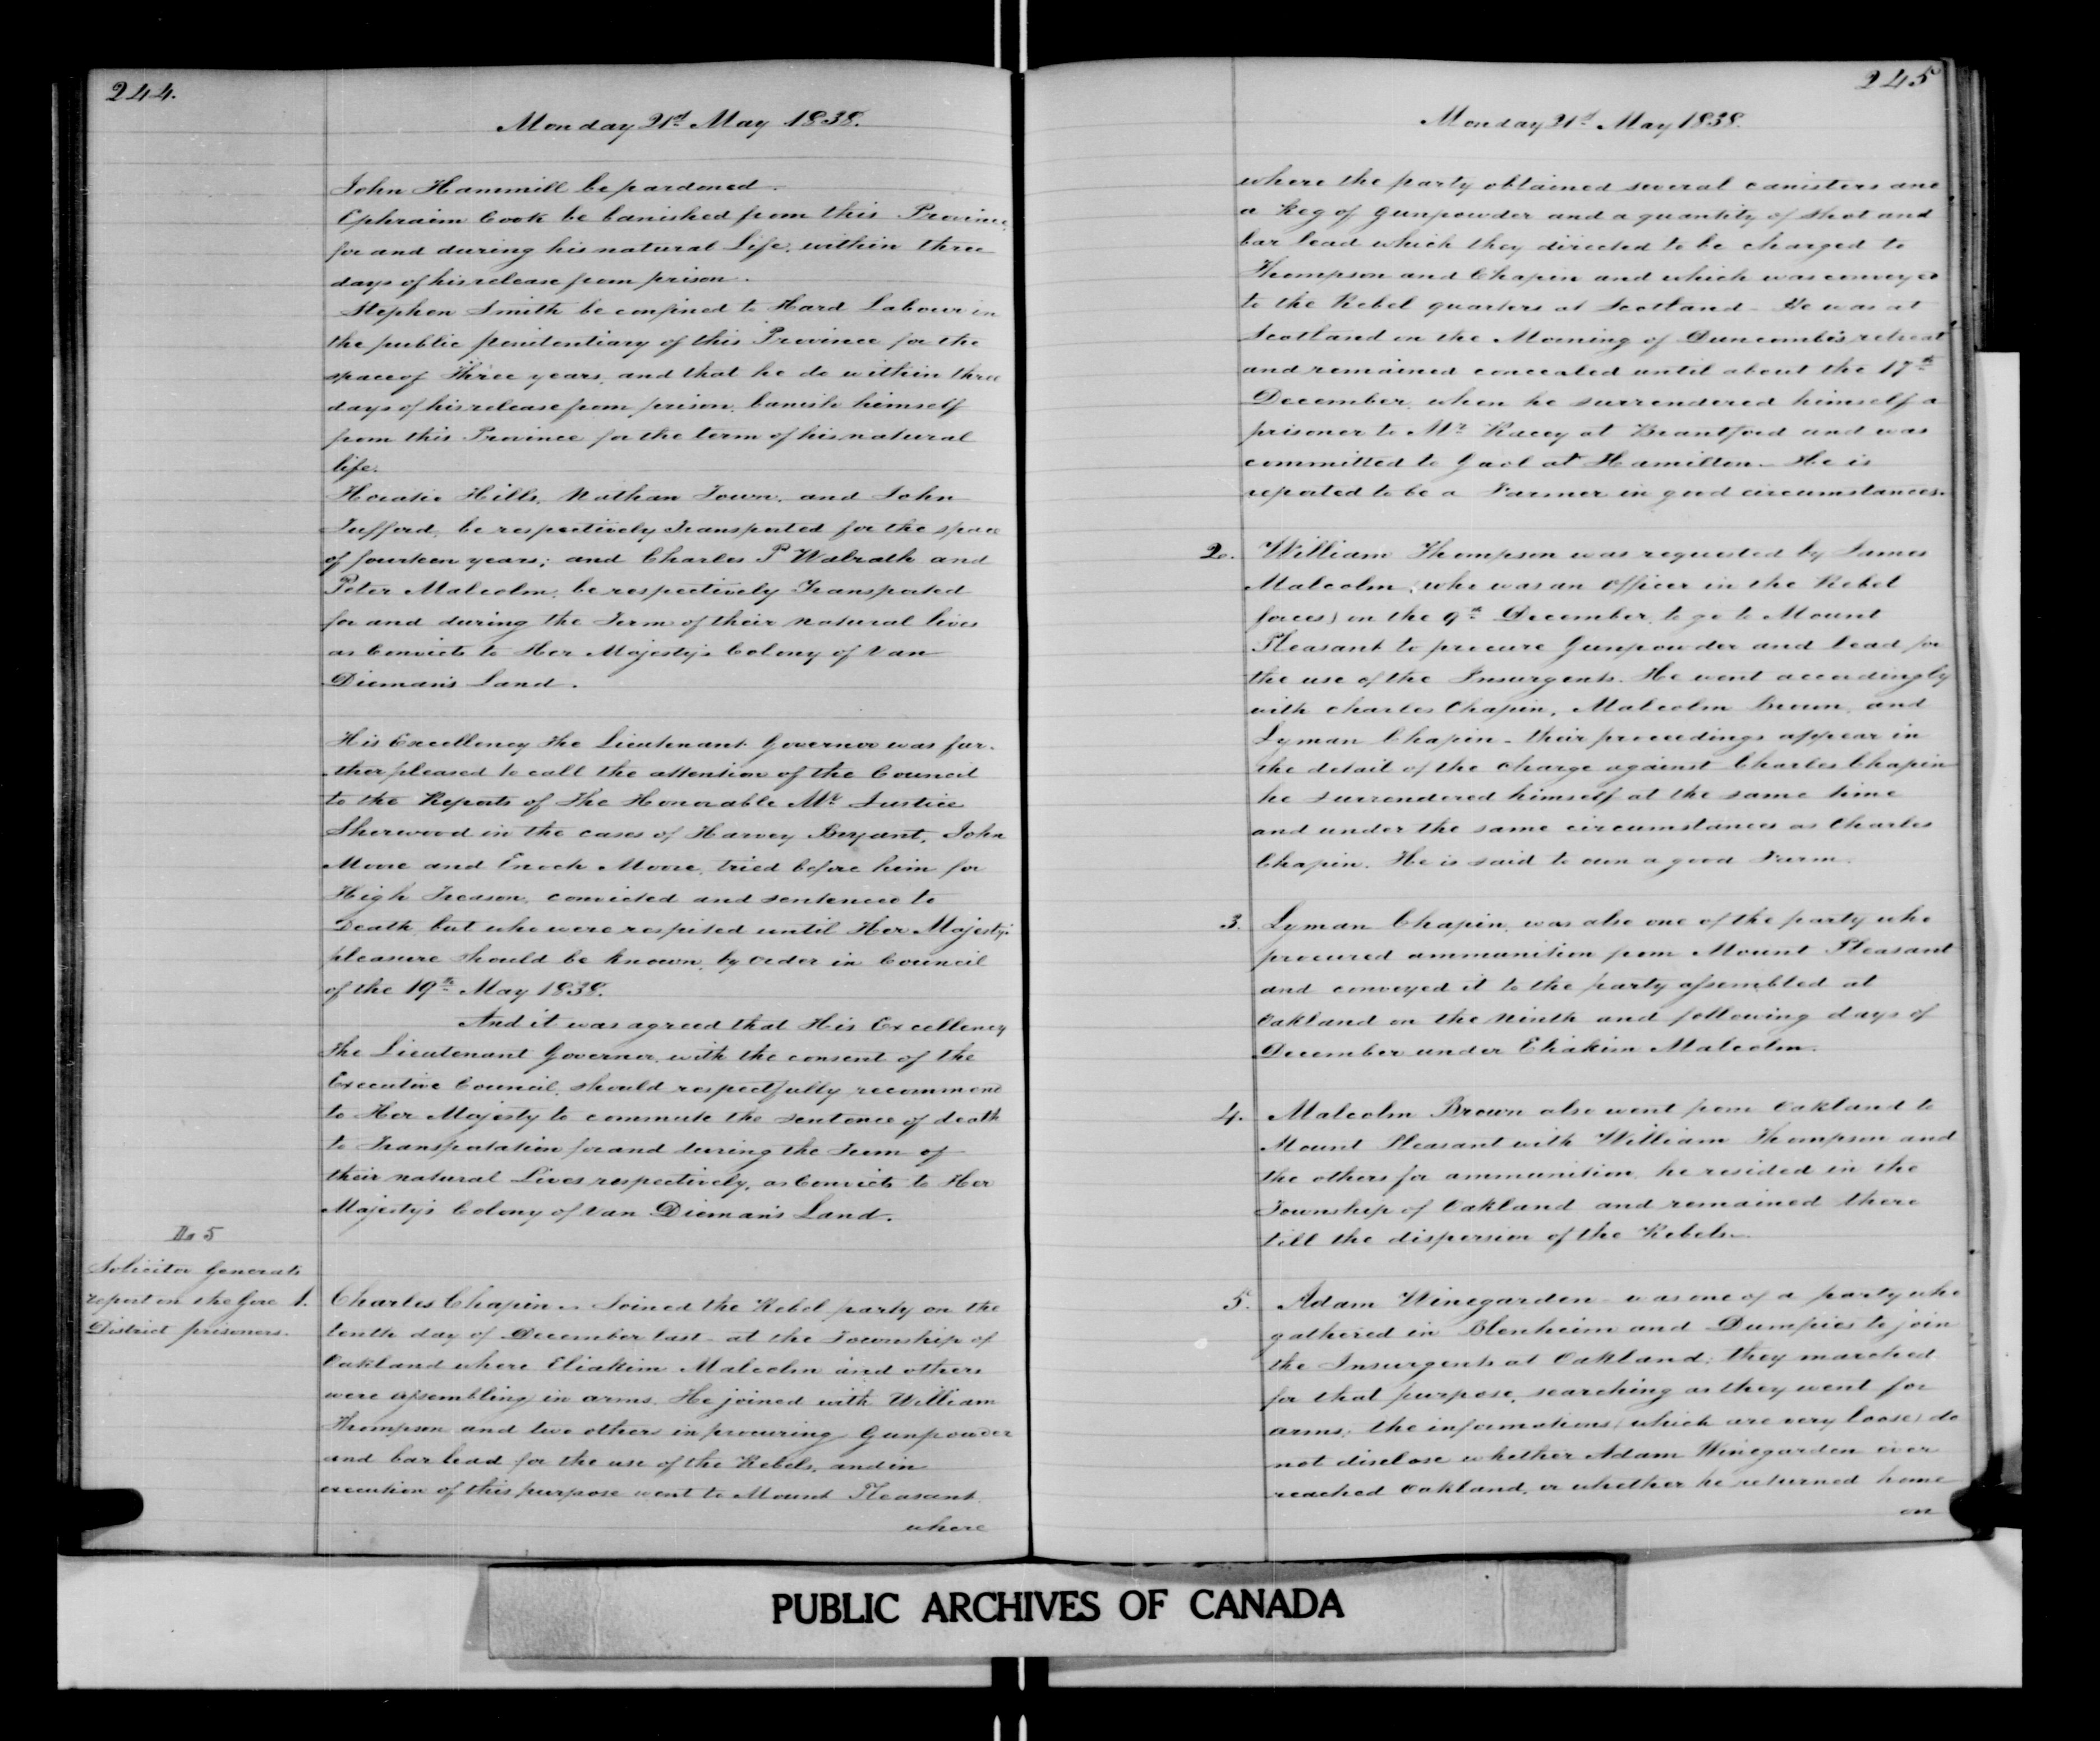 244.
Monday 21st May 1838.
John Hammill be pardoned.
Ephraim Cook be banished from this Province,
for and during his natural Life, within three
days of his release from prison.
Stephen Smith be confined to Hard Labour in
the public penitentiary of this Province for the
space of Three years, and that he do within three
days of his release from prison, banish himself
from this Province for the term of his natural
life.
Horatio Hills, Nathan Town, and John
Tufford, be respectively Transported for the space
of fourteen years; and Charles P Walrath and
Peter Malcolm, be respectively Transported
for and during the Term of their natural lives
as Convicts to Her Majesty's Colony of Van
Dieman's Land.
His Excellency The Lieutenant Governor was fur-
ther pleased to call the attention of the Council
to the Reports of The Honorable Mr Justice
Sherwood in the cases of Harvey Bryant, John
Moore and Enoch Moore, tried before him for
High Treason, convicted and sentenced to
Death, but who were respited until Her Majesty's
pleasure should be known, by order in Council
of the 19th May 1838.
And it was agreed that His Excellency
The Lieutenant Governor, with the consent of the
Executive Council, should respectfully recommend
to Her Majesty to commute the sentence of death
to Transportation for and during the Term of
their natural Lives respectively, as Convicts to Her
Majesty's Colony of Van Dieman's Land.
No 5
Solicitor Generals
report on the Gore
District prisoners.
1. Charles Chapin - Joined the Rebel party on the
tenth day of December last - at the Township of
Oakland where Eliakim Malcolm and others
were assembling in arms. He joined with William
Thompson and two others in procuring Gunpowder
and bar lead for the use of the Rebels, and in
execution of this purpose went to Mount Pleasant
where
245
Monday 21st May 1838.
where the party obtained several canisters and
a Keg of Gunpowder and a quantity of shot and
bar lead which they directed to be charged to
Thompson and Chapin and which was conveyed
to the Rebel quarters at Scotland - He was at
Scotland on the Morning of Duncombe's retreat
and remained concealed until about the 17th
December, when he surrendered himself a
prisoner to Mr Racey at Brantford and was
committed to Gaol at Hamilton - He is
reported to be a Farmer in good circumstances.
2. William Thompson was requested by James
Malcolm (who was an Officer in the Rebel
forces) on the 9th December, to go to Mount
Pleasant to procure Gunpowder and lead for
the use of the Insurgents. He went accordingly
with Charles Chapin, Malcolm Brown, and
Lyman Chapin - their proceedings appear in
the detail of the charge against Charles Chapin
he surrendered himself at the same time
and under the same circumstances as Charles
Chapin. He is said to own a good Farm.
3. Lyman Chapin, was also one of the party who
procured ammunition from Mount Pleasant
and conveyed it to the party assembled at
Oakland on the Ninth and following days of
December under Eliakim Malcolm.
4. Malcolm Brown also went from Oakland to
Mount Pleasant with William Thompson and
the others for ammunition, he resided in the
Township of Oakland and remained there
till the dispersion of the Rebels.
5. Adam Winegarden - was one of a party who
gathered in Blenheim and Dumfries to join
the Insurgents at Oakland; they marched
for that purpose, searching as they went for
arms, the informations (which are very loose) do
not disclose whether Adam Winegarden ever
reached Oakland, or whether he returned home
on
PUBLIC ARCHIVES OF CANADA